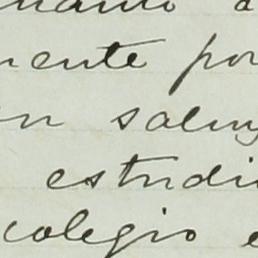 uanto a
mente por
en salu
estudi
colegio e